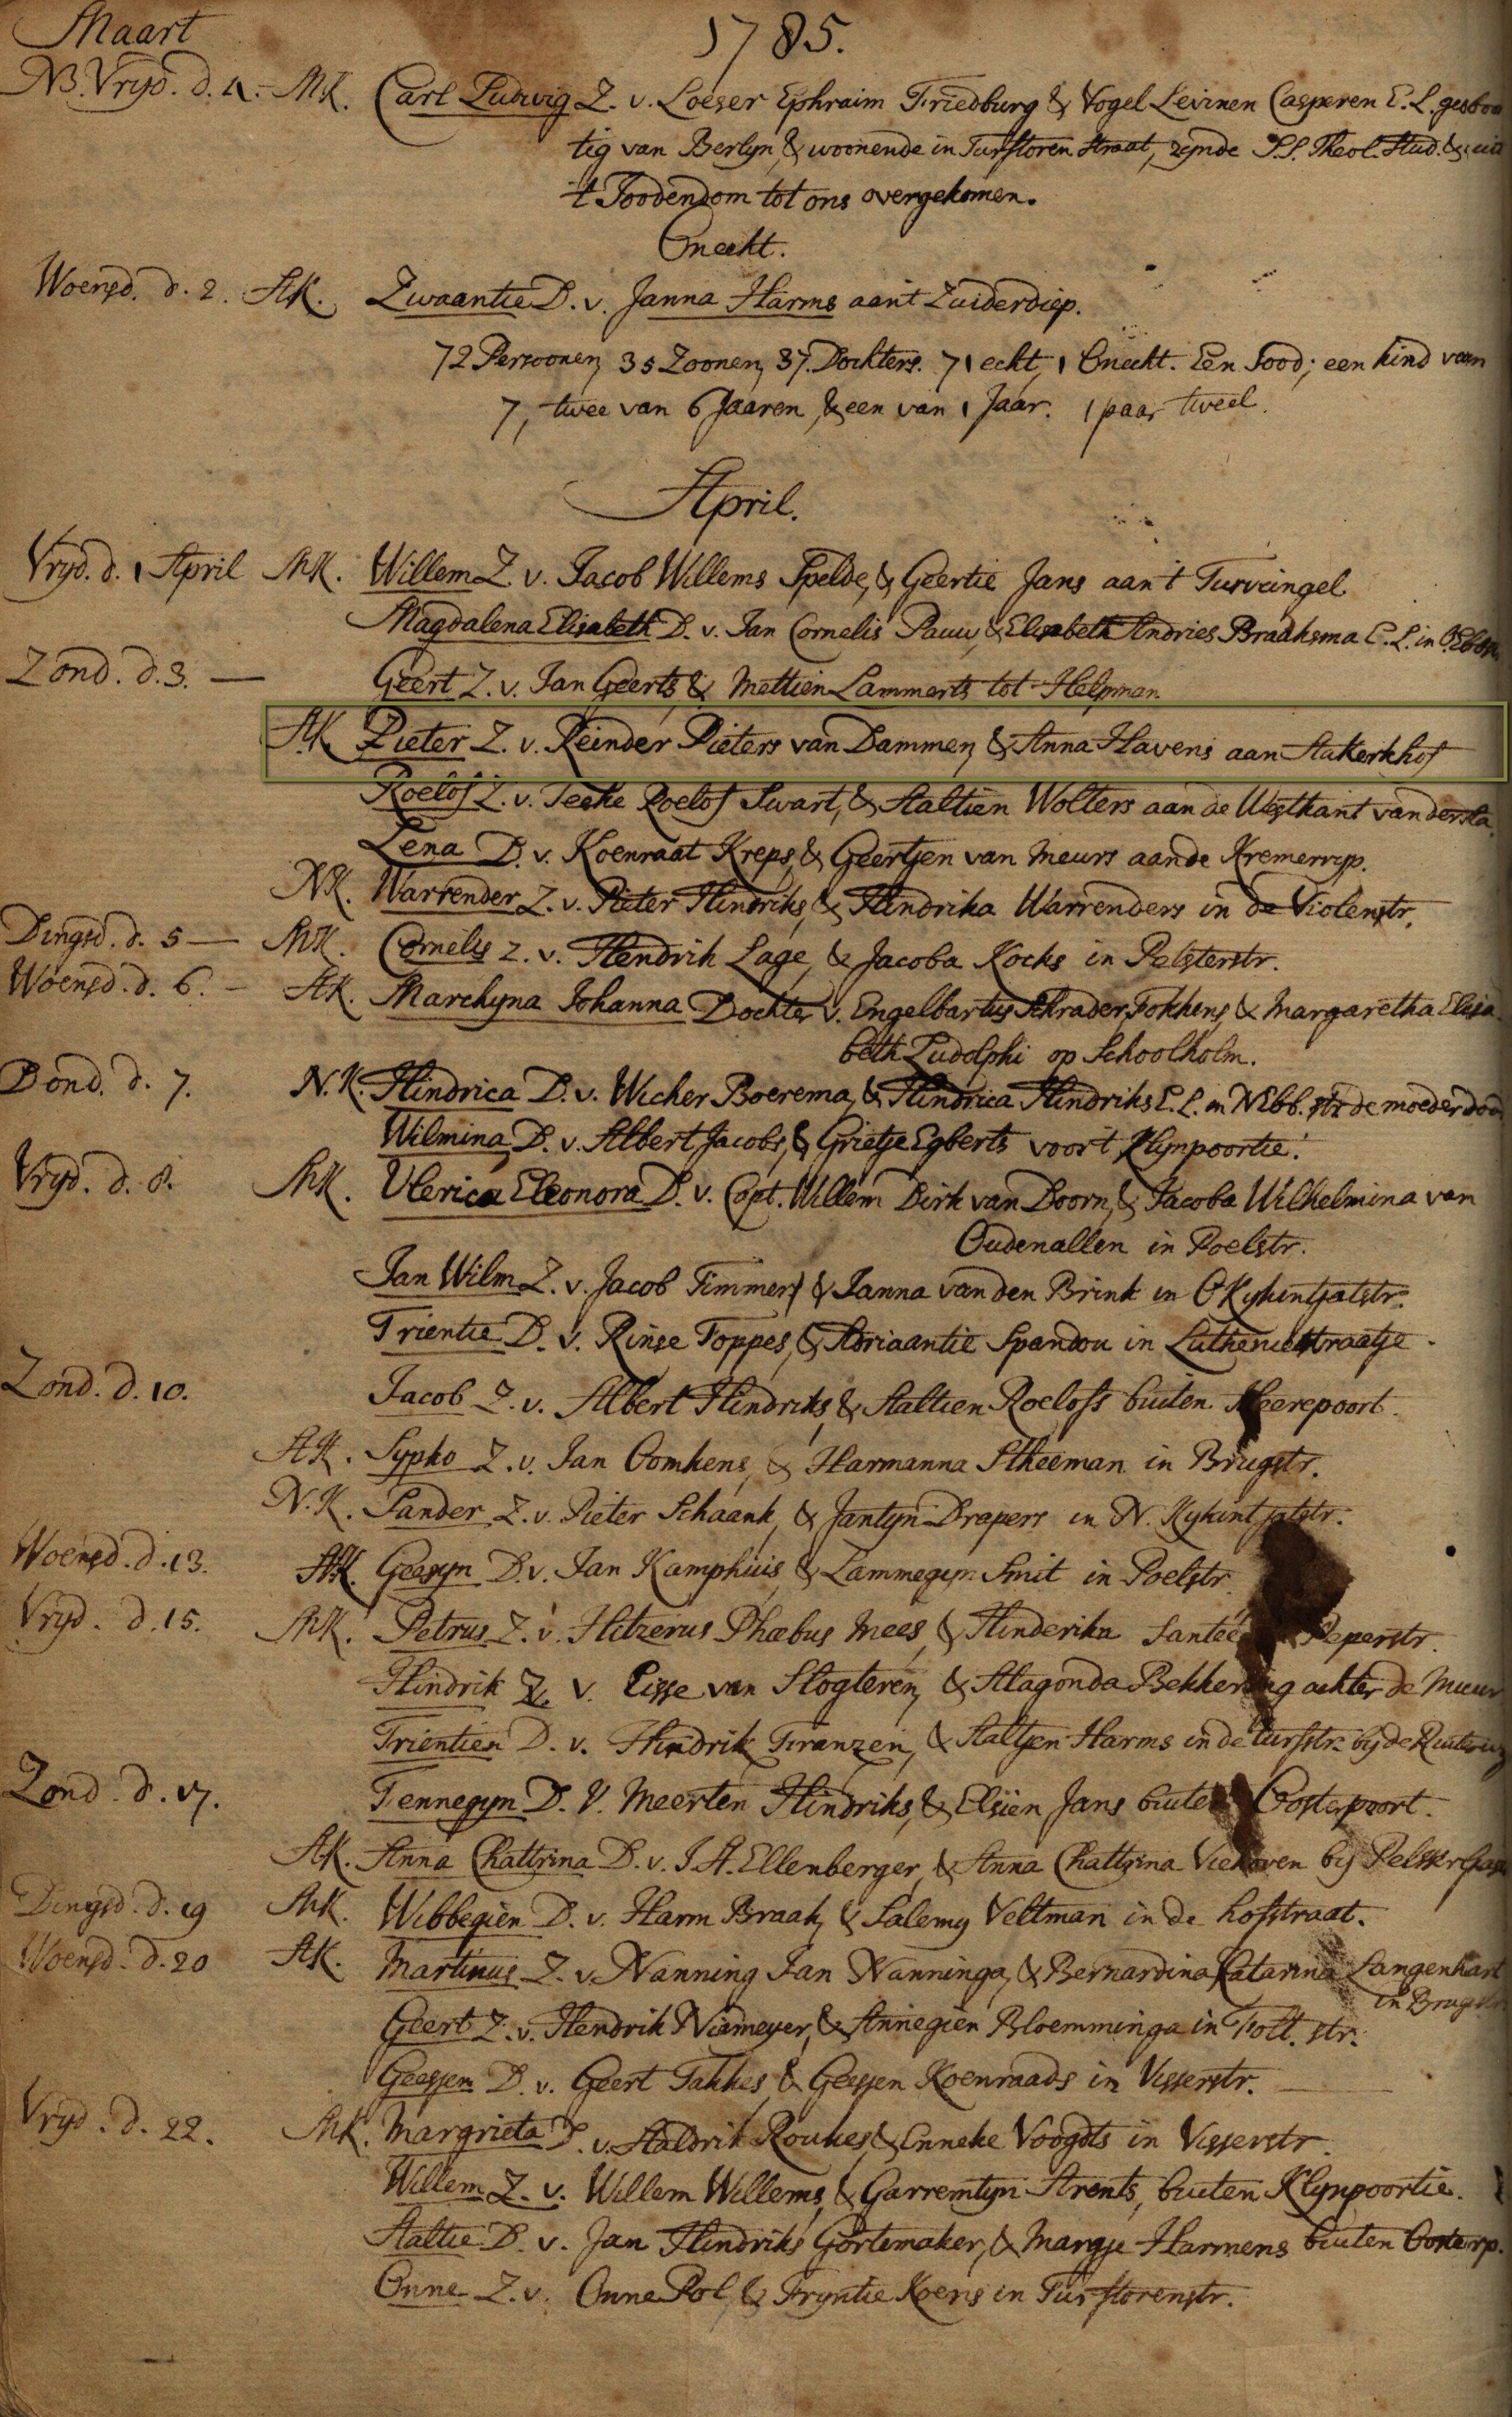 Maart 1785.
NB. Vryd. d. 1. - MK. Carl Ludwig Z. v. Loeser Ephraim Friedburg & Vogel Levinen Casperen E. L. geboor
tig van Berlyn, & woonende in Turftoren Straat, zynde S.S. Theol. Stud. & uit
't Joodendom tot ons overgekomen.
Onecht.
Woensd. d. 2. AK. Zwaantie D. v. Janna Harms aan't Zuiderdiep.
72 Persoonen, 35 Zoonen, 37. Dochters. 71 echt, 1 Onecht. Een Jood; een kind van
7, twee van 6 Jaaren, & een van 1 Jaar. 1 paar tweel.
April.
Vryd. d. 1 April MK. Willem Z. v. Jacob Willems Spelde, & Geertie Jans aan 't Turvcingel
Magdalena Elisabeth D. v. Jan Cornelis Pauw, & Elisabeth Andries Braaksma E. L. in
Zond. d. 3. — Geert Z. v. Jan Geerts, & Mettien Lammerts tot Helpman
AK Pieter Z. v. Reinder Pieters van Dammen, & Anna Havens aan Aakerkhof
Roelof Z. v. Teeke Roelof Swart, & Aaltien Wolters aan de Westkant van der Aa.
Lena D. v. Koenraat Kreps, & Geertjen van Meurs aan de Kremerryp.
NK. Warrender Z. v. Pieter Hindriks, & Hindrika Warrenders in de Violenstr.
Dingsd. d. 5 — MK. Cornelis z. v. Hendrik Lage, & Jacoba Kocks in Pelsterstr.
Woensd. d. 6. - AK. Marchyna Johanna Dochter v. Engelbartus Schrader Fokkens, & Margaretha Elisa
beth Ludolphi op Schoolholm.
Dond. d. 7. N.K. Hindrica D. v. Wicher Boerema, & Hindrica Hindriks E. L. in NEbb. str de moeder dood
Wilmina D. v. Albert Jacobs, & Grietje Egberts voor 't Klynpoortie.
Vryd. d. 8. MK. Ulerica Eleonora D. v. Capt. Willem Dirk van Doorn, & Jacoba Wilhelmina van
Oudenallen in Poelstr.
Jan Wilm Z. v. Jacob Timmer, & Janna van den Brink in O Kykintjatstr.
Trientie D. v. Rinse Foppes, & Adriaantie Spandou in Luthersestraatje.
Zond. d. 10. Jacob Z. v. Albert Hindriks, & Aaltien Roelofs buiten Heerepoort.
AK. Sypko Z. v. Jan Oomkens, & Harmanna Stheeman in Brugstr.
N.K. Sander Z. v. Pieter Schaank, & Jantyn Drapers in N. Kykintjatstr.
Woensd. d. 13. AK. Geesyn D. v. Jan Kamphuis, & Lammegyn Smit in Poelstr.
Vryd. d. 15. MK. Petrus Z. v. Hitzerus Phœbus Mees, & Hinderika Santeé Peperstr.
Hindrik Z. v. Eisse van Slogteren, & Alagonda Bekkering achter de Muur
Trientien D. v. Hindrik Franzen, & Aaltjen Harms in de turfstr. by de
Zond. d. 17. Tennegyn D. v. Meerten Hindriks, & Elsien Jans buiten Oosterpoort.
AK. Anna Chattrina D. v. J. A. Ellenberger, & Anna Chattrina Viehoven by
Dingsd. d. 19 MK. Wibbegien D. v. Harm Braak, & Salemy Veltman in de hofstraat.
Woensd. d. 20 AK. Martinus Z. v. Nanning Jan Nanninga, & Bernardina Catarina Langenhart
in Brugstr
Geert Z. v. Hendrik Niemeyer, & Annegien Bloemminga in Folt. str.
Geessen D. v. Geert Takkes, & Geessen Koenraads in Visserstr.
Vryd. d. 22. MK. Margrieta D. v. Aaldrik Roukes, & Enneke Voogdts in Visserstr.
Willem Z. v. Willem Willems, & Garremtyn Arents, buiten Klynpoortie.
Aaltie D. v. Jan Hindriks Gortemaker, & Margje Harmens buiten Oosterp.
Onne Z. v. Onne Pol, & Tryntie Koens in Turftorenstr.